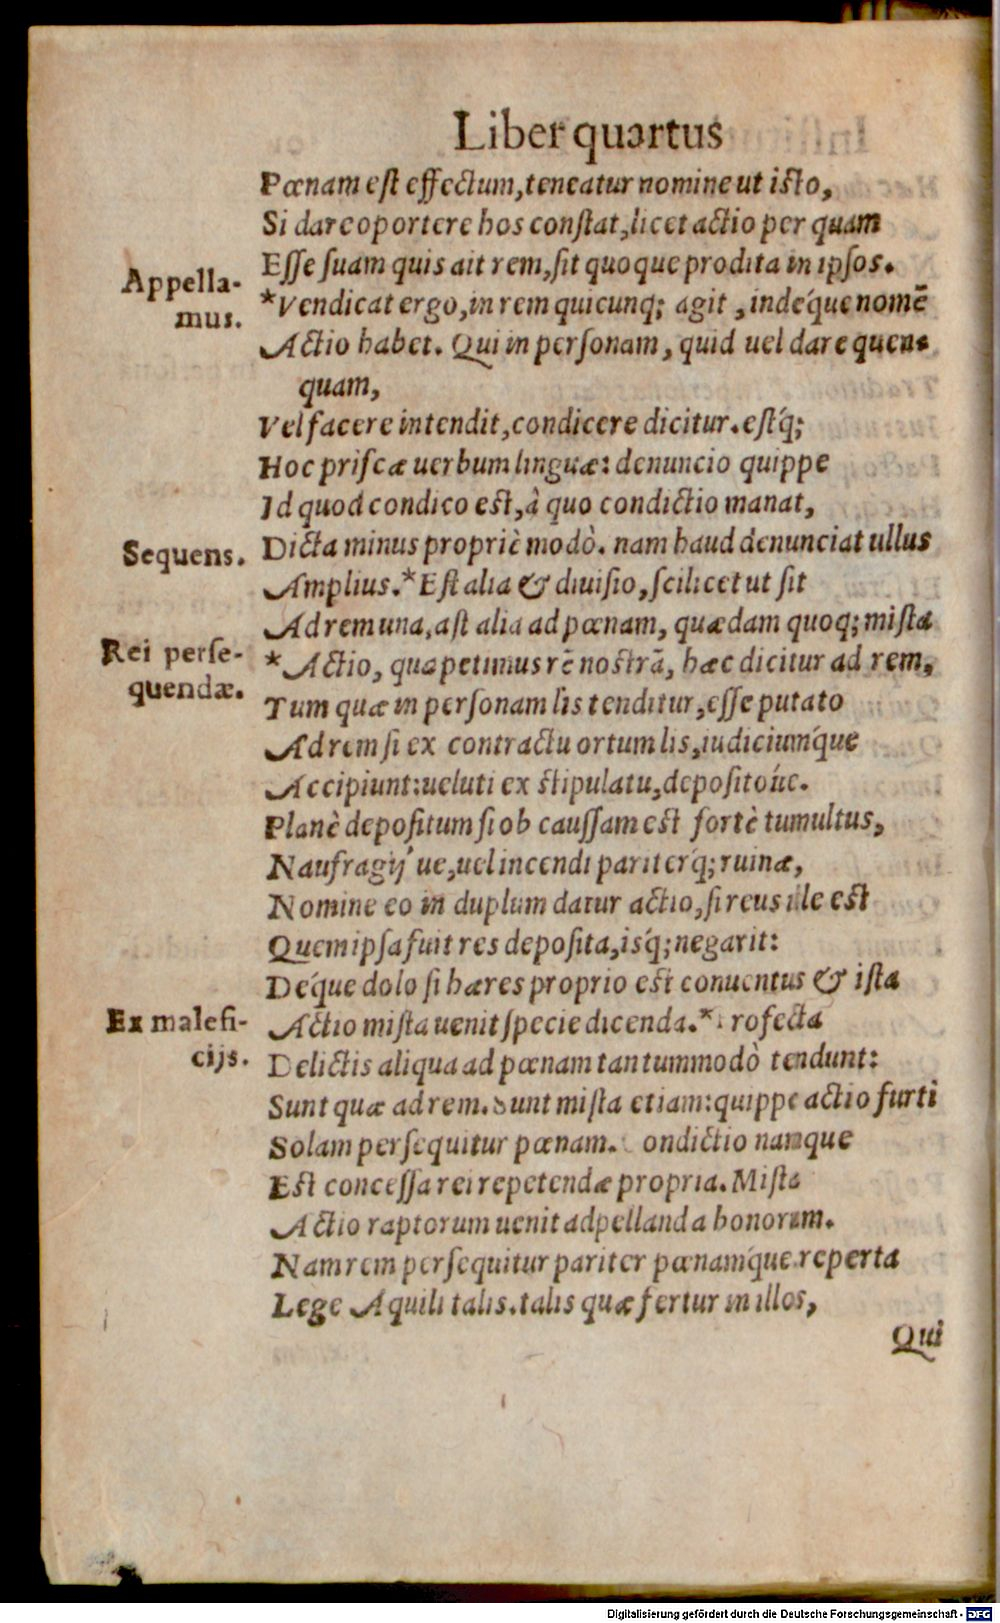 Liber quartus
Pœnam est effectum, teneatur nomine ut isto,
Si dare oportere hos constat, licet actio per quam
Esse suam quis ait rem, sit quoque prodita in ipsos.
Appella-
mus.
*Vendicat ergo, in rem quicunq; agit, indéque nomē
Actio habet. Qui in personam, quid uel dare quen-
quam,
Vel facere intendit, condicere dicitur. estq́;
Hoc priscæ uerbum linguæ: denuncio quippe
Id quod condico est, à quo condictio manat,
Dicta minus propriè modò. nam haud denunciat ullus
Sequens.
Amplius.* Est alia & diuisio, scilicet ut sit
Ad rem una, ast alia ad pœnam, quædam quoq; mista
Rei perse-
quendæ.
* Actio, qua petimus rē nostrā, hæc dicitur ad rem,
Tum quæ in personam lis tenditur, esse putato
Ad rem si ex contractu ortum lis, iudiciumq́ue
Accipiunt: ueluti ex stipulatu, depositóue.
Planè depositum si ob caussam est fortè tumultus,
Naufragij ue, uel incendi pariterq́; ruinæ,
Nomine eo in duplum datur actio, si reus ille est
Quem ipsa fuit res deposita, isq́; negarit:
Déque dolo si hæres proprio est conuentus & ista
Ex malefi-
cijs.
Actio mista uenit specie dicenda.* rofecta
Delictis aliqua ad pœnam tantummodò tendunt:
Sunt quæ ad rem. Sunt mista etiam: quippe actio furti
Solam persequitur pœnam. ondictio namque
Est concessa rei repetendæ propria. Mista
Actio raptorum uenit adpellanda bonorum.
Nam rem persequitur pariter pœnamq́ue reperta
Lege Aquili talis. talis quæ fertur in illos,
Qui
Digitalisierung gefördert durch die Deutsche Forschungsgemeinschaft - DFG